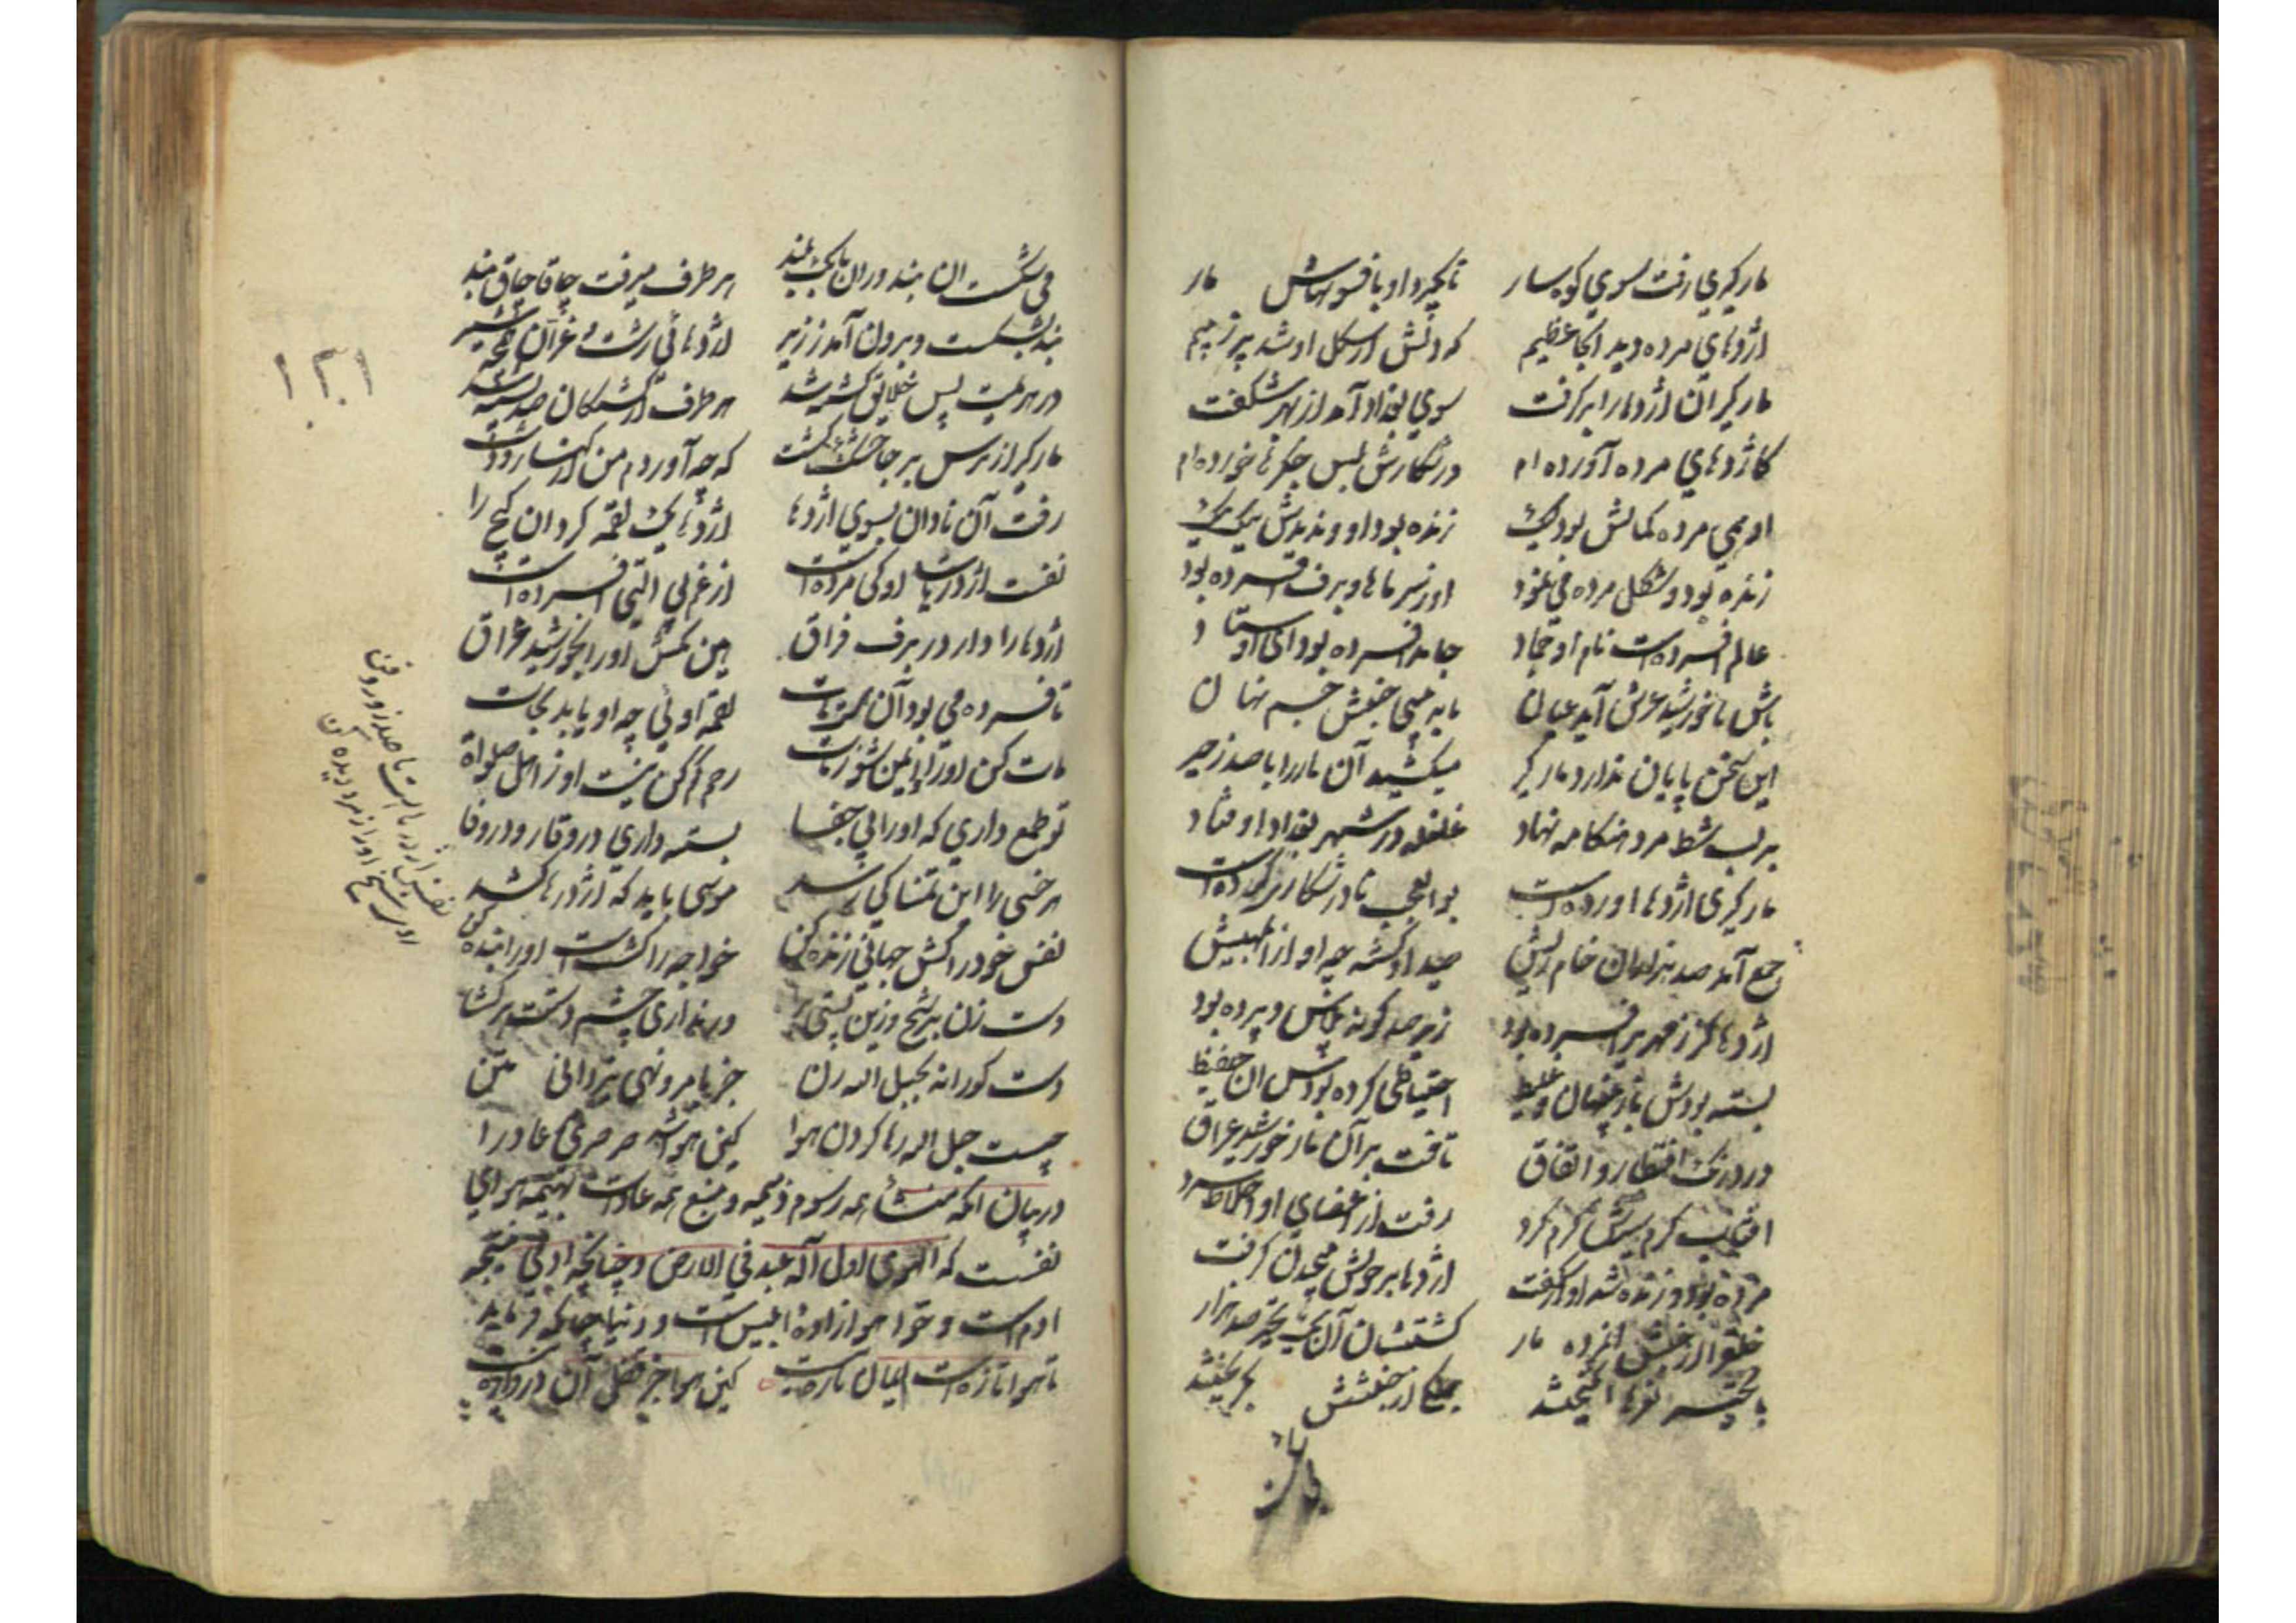 مارکیری رفت سوی کوهسار تا بکیرد او بافسونهاش مار
اژدهای مرده دید انجا عظیم که دلش از شکل او شد پر ز بیم
مارکیر ان اژدها را برکرفت سوی بغداد آمد از بهر شکفت
کاژدهای مرده آورده ام در شکارش بس جکرها خورده ام
او همی مرده کمانش بود لیک زنده بود او و ندیدش نیک نیک
او ز سرماها و برف افسرده بود زنده بود و شکل مرده می نمود
عالم افسردست نام او جماد جامد افسرده بود ای اوستاد
باش تا خورشید عرش آید عیان تا به بینی جنبش جسم نهان
این سخن پایان ندارد مارکیر میکشید آن مار را با صد زحیر
بر لب شط مرد هنکامه نهاد غلغله در شهر بغداد اوفتاد
مارکیری اژدها آوردست بوالعجب نادر شکاری کردست
جمع آمد صد هزاران خام ریش صید او کشته چو او از ابلهیش
اژدها کز زمهریر افسرده بود زیر صد کونه پلاس و پرده بود
بسته بودش با رسنهای غلیظ احتیاطی کرده بودش ان حفیظ
در درنک انتظار و اتفاق تافت بر آن مار خورشید عراق
افتاب کرم سیرش کرم کرد رفت از اعضای او اخلاط سرد
مرده بود و زنده شد او از شکفت اژدها بر خویش جنبیدن کرفت
خلق را از جنبش آن مرده مار کشتشان آن یک تحیر صد هزار
با تحیر نعرها انکیختند جملکان از جنبشش بکریختند
می شکست ان بند وزان بانک بلند هر طرف میرفت چاقا چاق بند
بند بشکست و بیرون آمد ز زیر اژدهائی زشت و غرآن همچو شیر
در هزیمت بس خلایق کشته شد هر طرف از کشتکان صد پشته شد
مارکیر از ترس بر جا خشک کشت که چه آوردم من از کهسار و دشت
رفت آن نادان بسوی اژدها اژدها یک لقمه کرد ان کیج را
نفست اژدرهاست او کی مرده است از غم بی التی افسرده است
اژدها را دار در برف فراق هین مکش او را بخورشید عراق
تا فسرده می بود آن اژدهات لقمه اوئی چو او یابد نجات
مات کن او را و ایمن شو ز مات رحم کم کن نیست او ز اهل صلواة
تو طمع داری که او را بی جفا بسته داری در وقار و در وفا
هر خسی را این تمنا کی رسد موسی باید که اژدرها کشد
نفس خود را کش جهانی زنده کن خواجه را کشتست او را بنده کن
دست زن
ور نداری چشم دست
دست کورانه بحبل الله زن جز بامر و نهی یزدانی متن
چیست حبل الله رها کردن هوا کین هوا شد صرصری مر عاد را
در بیان انکه منشاء همه رسوم ذمیمه و منبع همه عادات بهیمه هوای
نفست که الهوی اول اله عبد فی الارض
ادمست و حوا هوا زاده ابلیس است و دنیا چنانکه فرماید
تا هوا تازه است ایمان تازه نیست کین هوا جز قفل آن دروازه نیست
١٢١
نفس اژدرهاست با صد زور و فن
روی شیخ او را زمرد دیده کن